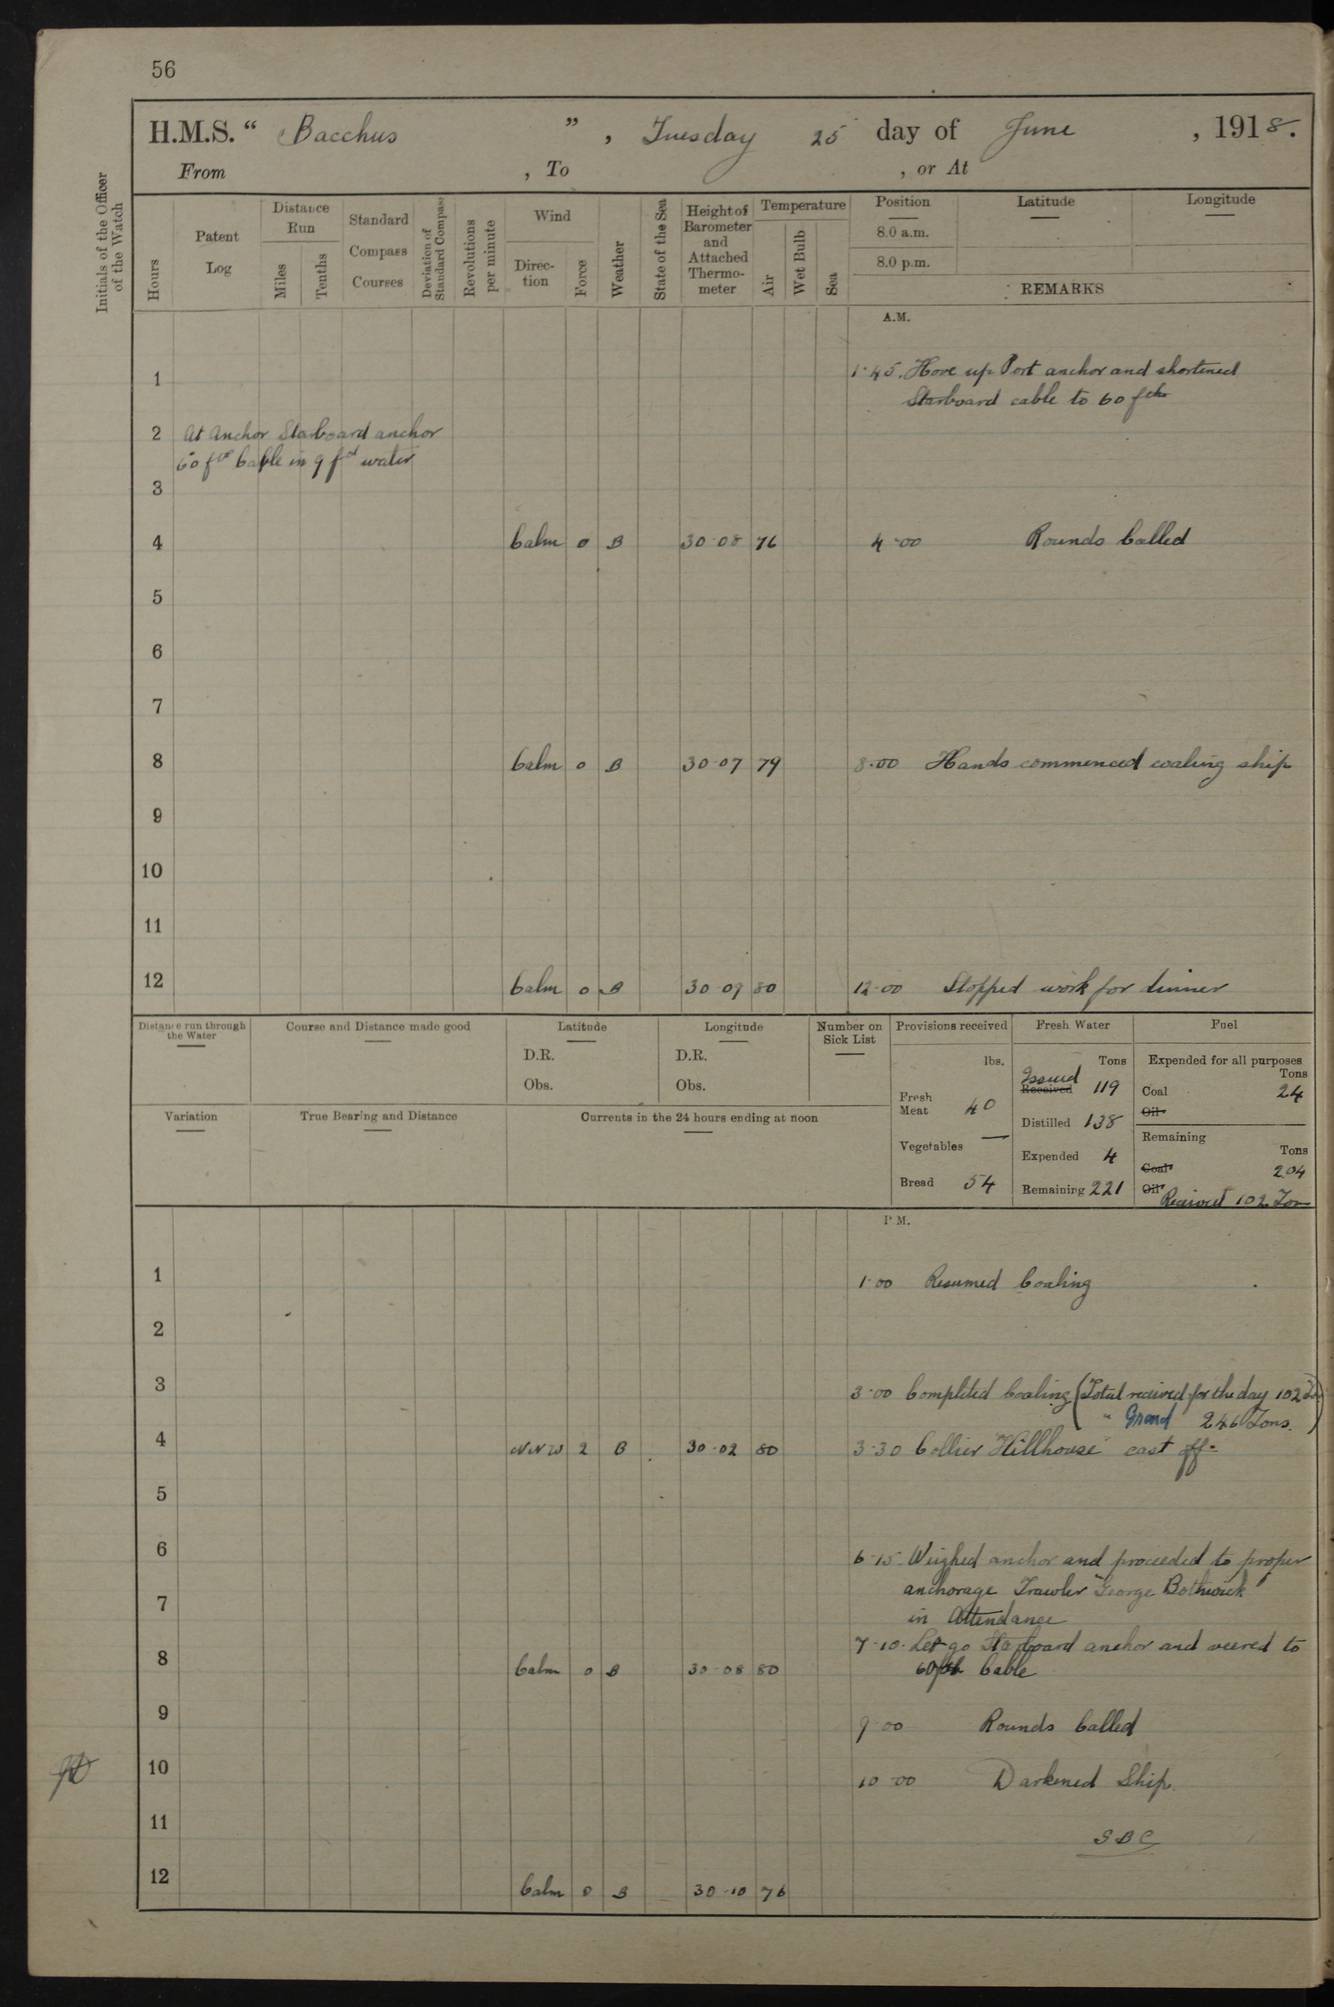 56
H.M.S. “ Bacchus ” , Tuesday 25 day of June , 1918.
From , To , or At
Initials of the Officer of the Watch
Hours
Patent Log
Distance Run
Miles
Tenths
Standard Compass Courses
Deviation of Standard Compass
Revolutions per minute
Wind
Direction
Force
Weather
State of the Sea
Height of Barometer and Attached Thermometer
Temperature
Air
Wet Bulb
Sea
Position
8.0 a.m.
8.0 p.m.
Latitude
Longitude
REMARKS
A.M.
1 1·45. Hove up Port anchor and shortened
Starboard cable to 60 fths
2 At Anchor Starboard anchor
60 fths Cable in 9 fth water
3
4 Calm 0 B 30·08 76 4·00 Rounds Called
5
6
7
8 Calm 0 B 30·07 79 8·00 Hands commenced coaling ship
9
10
11
12 Calm 0 B 30·09 80 12·00 Stopped work for dinner
Distance run through the Water
Course and Distance made good
Latitude
D.R.
Obs.
Longitude
D.R.
Obs.
Number on Sick List
Provisions received
lbs.
Fresh Meat 40
Vegetables —
Bread 54
Fresh Water
Tons
Issued
Received 119
Distilled 138
Expended 4
Remaining 221
Fuel
Expended for all purposes
Tons
Coal 24
Oil
Remaining
Tons
Coal 204
Oil
Received 102 Tons
Variation
True Bearing and Distance
Currents in the 24 hours ending at noon
P.M.
1 1·00 Resumed Coaling
2
3 3·00 Completed Coaling (Total received for the day 102 Tons
" Grand 246 Tons.)
4 NNW 2 B 30·02 80 3·30 Collier "Hillhouse" cast off.
5
6 6·15. Weighed anchor and proceeded to proper
anchorage Trawler "George Bothwick"
7 in Attendance
7·10. Let go Starboard anchor and veered to
8 Calm 0 B 30·08 80 60 fth Cable
9 9·00 Rounds Called
10 10·00 Darkened Ship.
11 SBC
12 Calm 0 B 30·10 76